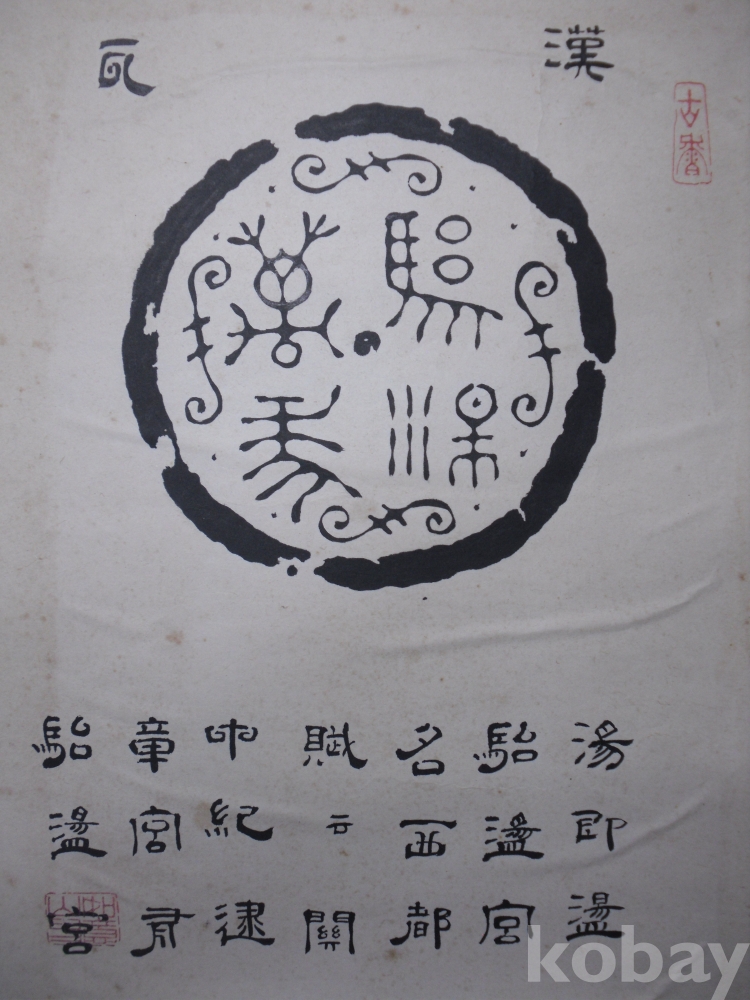 漢瓦
古香
駘湯
萬年
湯即盪
駘盪宮
名西都
賦云關
中紀建
章宮有
駘盪宮
kobay